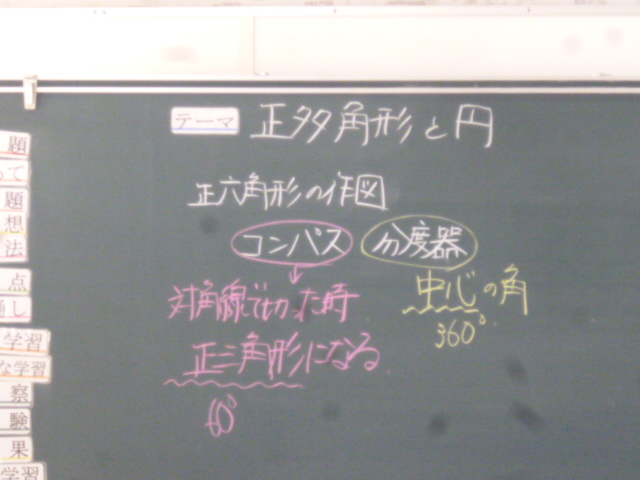 テーマ 正多角形と円
正六角形の作図
コンパス 分度器
対角線で切った時
正三角形になる
60°
中心の角
360°
題
って
題
想
法
点
通し
学習
な学習
察
験
果
学習